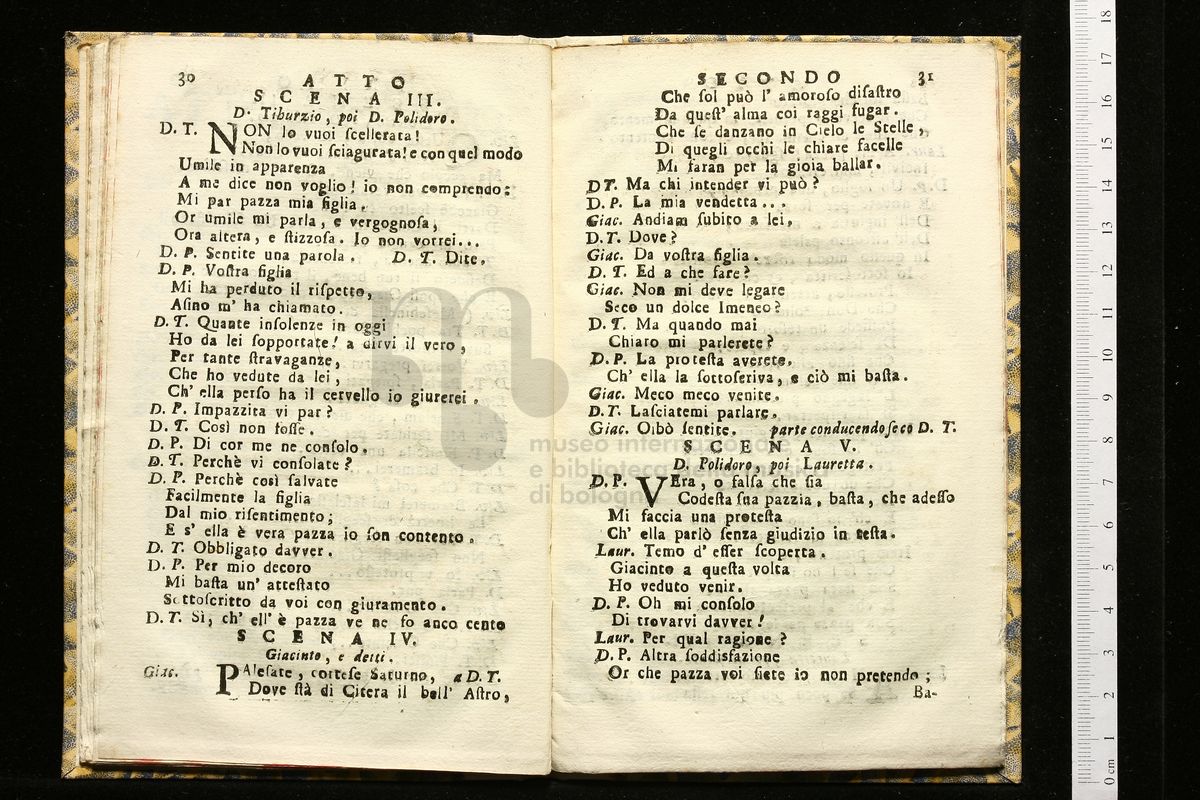 30 A T T O
S C E N A III.
D. Tiburzio, poi D. Polidoro.
D. T. NON lo vuoi ſcellerata!
Non lo vuoi ſciagurata! e con quel modo
Umile in apparenza
A me dice non voglio! io non comprendo:
Mi par pazza mia figlia.
Or umile mi parla, e vergognoſa,
Ora altera, e ſtizzoſa. Io non vorrei...
D. P. Sentite una parola. D. T. Dite.
D. P. Voſtra figlia
Mi ha perduto il riſpetto,
Aſino m' ha chiamato.
D. T. Quante inſolenze in oggi
Ho da lei ſopportate! a dirvi il vero,
Per tante ſtravaganze,
Che ho vedute da lei,
Ch' ella perſo ha il cervello io giurerei.
D. P. Impazzita vi par?
D. T. Così non foſſe.
D. P. Di cor me ne conſolo.
D. T. Perchè vi conſolate?
D. P. Perchè così ſalvate
Facilmente la figlia
Dal mio riſentimento;
E s' ella è vera pazza io ſon contento.
D. T. Obbligato davver.
D. P. Per mio decoro
Mi baſta un' atteſtato
Sottoſcritto da voi con giuramento.
D. T. Sì, ch' ell' è pazza ve ne fo anco cento
S C E N A IV.
Giacinto, e detti.
Giac. PAleſate, corteſe Saturno, a D. T.
Dove ſtà di Citera il bell' Aſtro,
SECONDO 31
Che ſol può l' amoroſo diſaſtro
Da queſt' alma coi raggi fugar.
Che ſe danzano in Cielo le Stelle,
Di quegli occhi le chiare facelle
Mi faran per la gioia ballar.
D T. Ma chi intender vi può?
D. P. La mia vendetta...
Giac. Andiam ſubito a lei.
D. T. Dove?
Giac. Da voſtra figlia.
D. T. Ed a che fare?
Giac. Non mi deve legare
Seco un dolce Imeneo?
D. T. Ma quando mai
Chiaro mi parlerete?
D. P. La proteſta averete.
Ch' ella la ſottoſeriva, e ciò mi baſta.
Giac. Meco meco venite.
D. T. Laſciatemi parlare.
Giac. Oibò ſentite. parte conducendoſeco D. T.
S C E N A V.
D. Polidoro, poi Lauretta.
D. P. VEra, o falſa che ſia
Codeſta ſua pazzia, baſta, che adeſſo
Mi faccia una proteſta
Ch' ella parlò ſenza giudizio in teſta.
Laur. Temo d' eſſer ſcoperta.
Giacinto a queſta volta
Ho veduto venir.
D. P. Oh mi conſolo
Di trovarvi davver!
Laur. Per qual ragione?
D. P. Altra ſoddisfazione
Or che pazza voi ſiete io non pretendo;
Ba-
museo internazionale
e biblioteca della musica
di bologna
0 cm 1 2 3 4 5 6 7 8 9 10 11 12 13 14 15 16 17 18